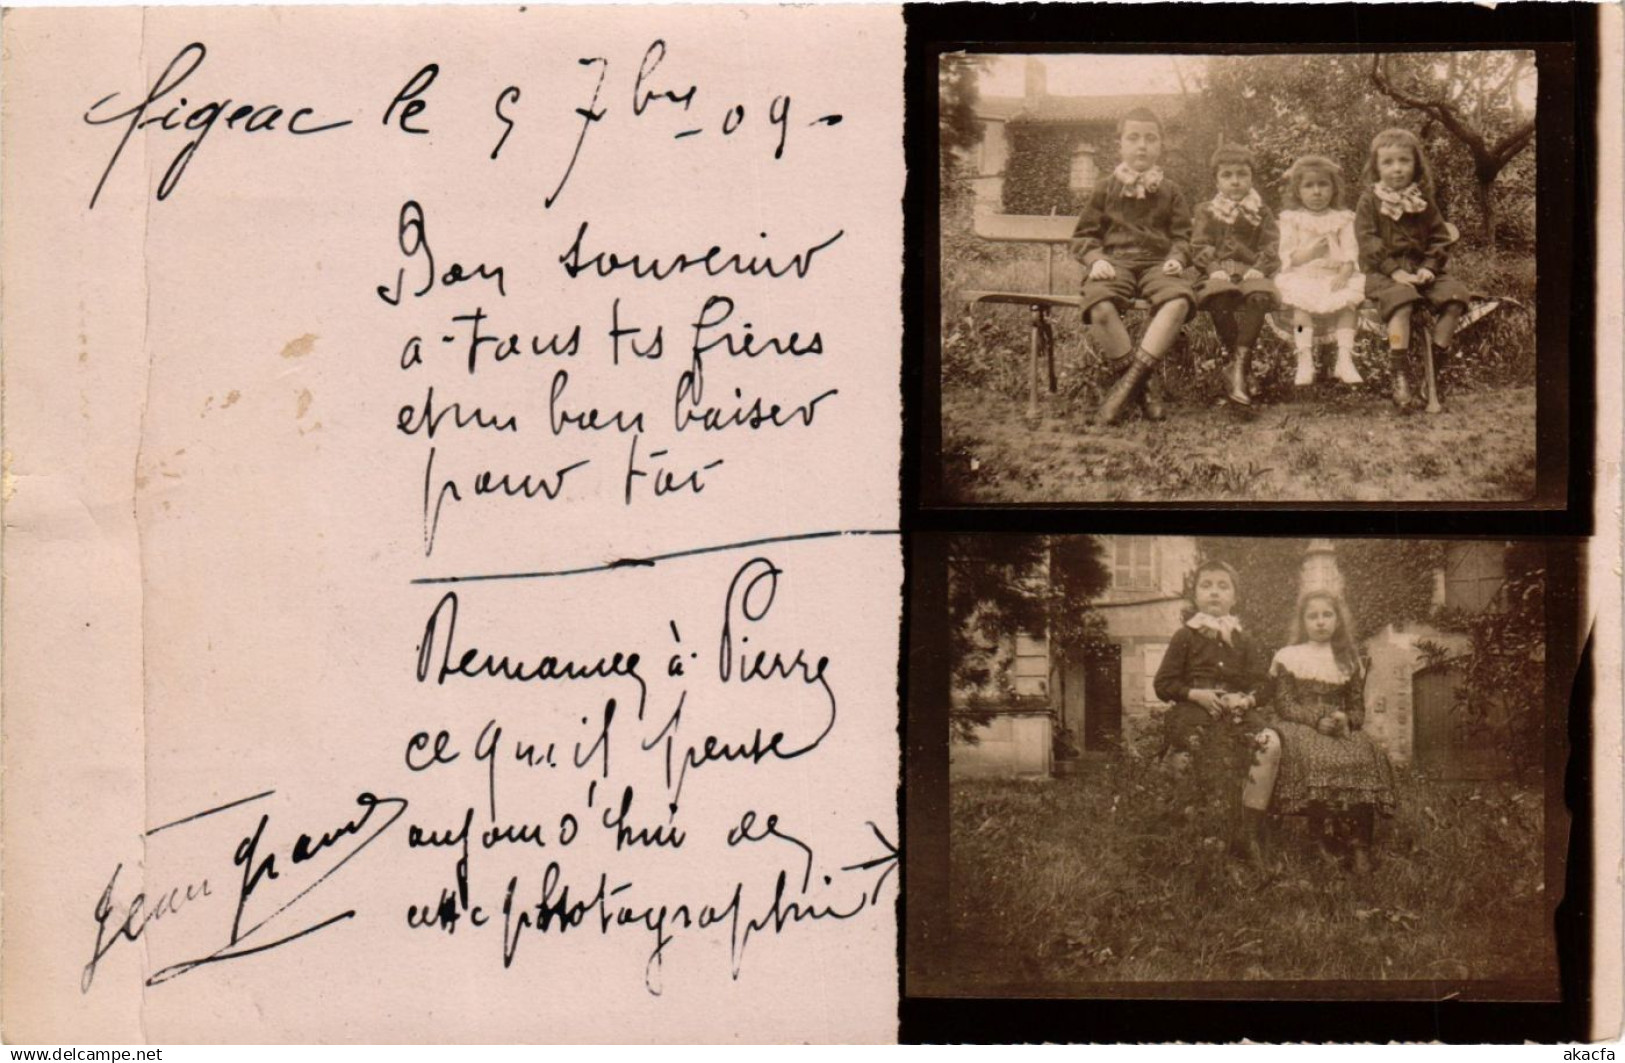 figeac le 5 7bre - 09 -
Bon souvenir
a - tous tes frères
et un bon baiser
pour toi
Demandez à Pierre
ce qu'il pense
aujourd'hui de
cette photographie
Jean Grand
akacfa
www.delcampe.net